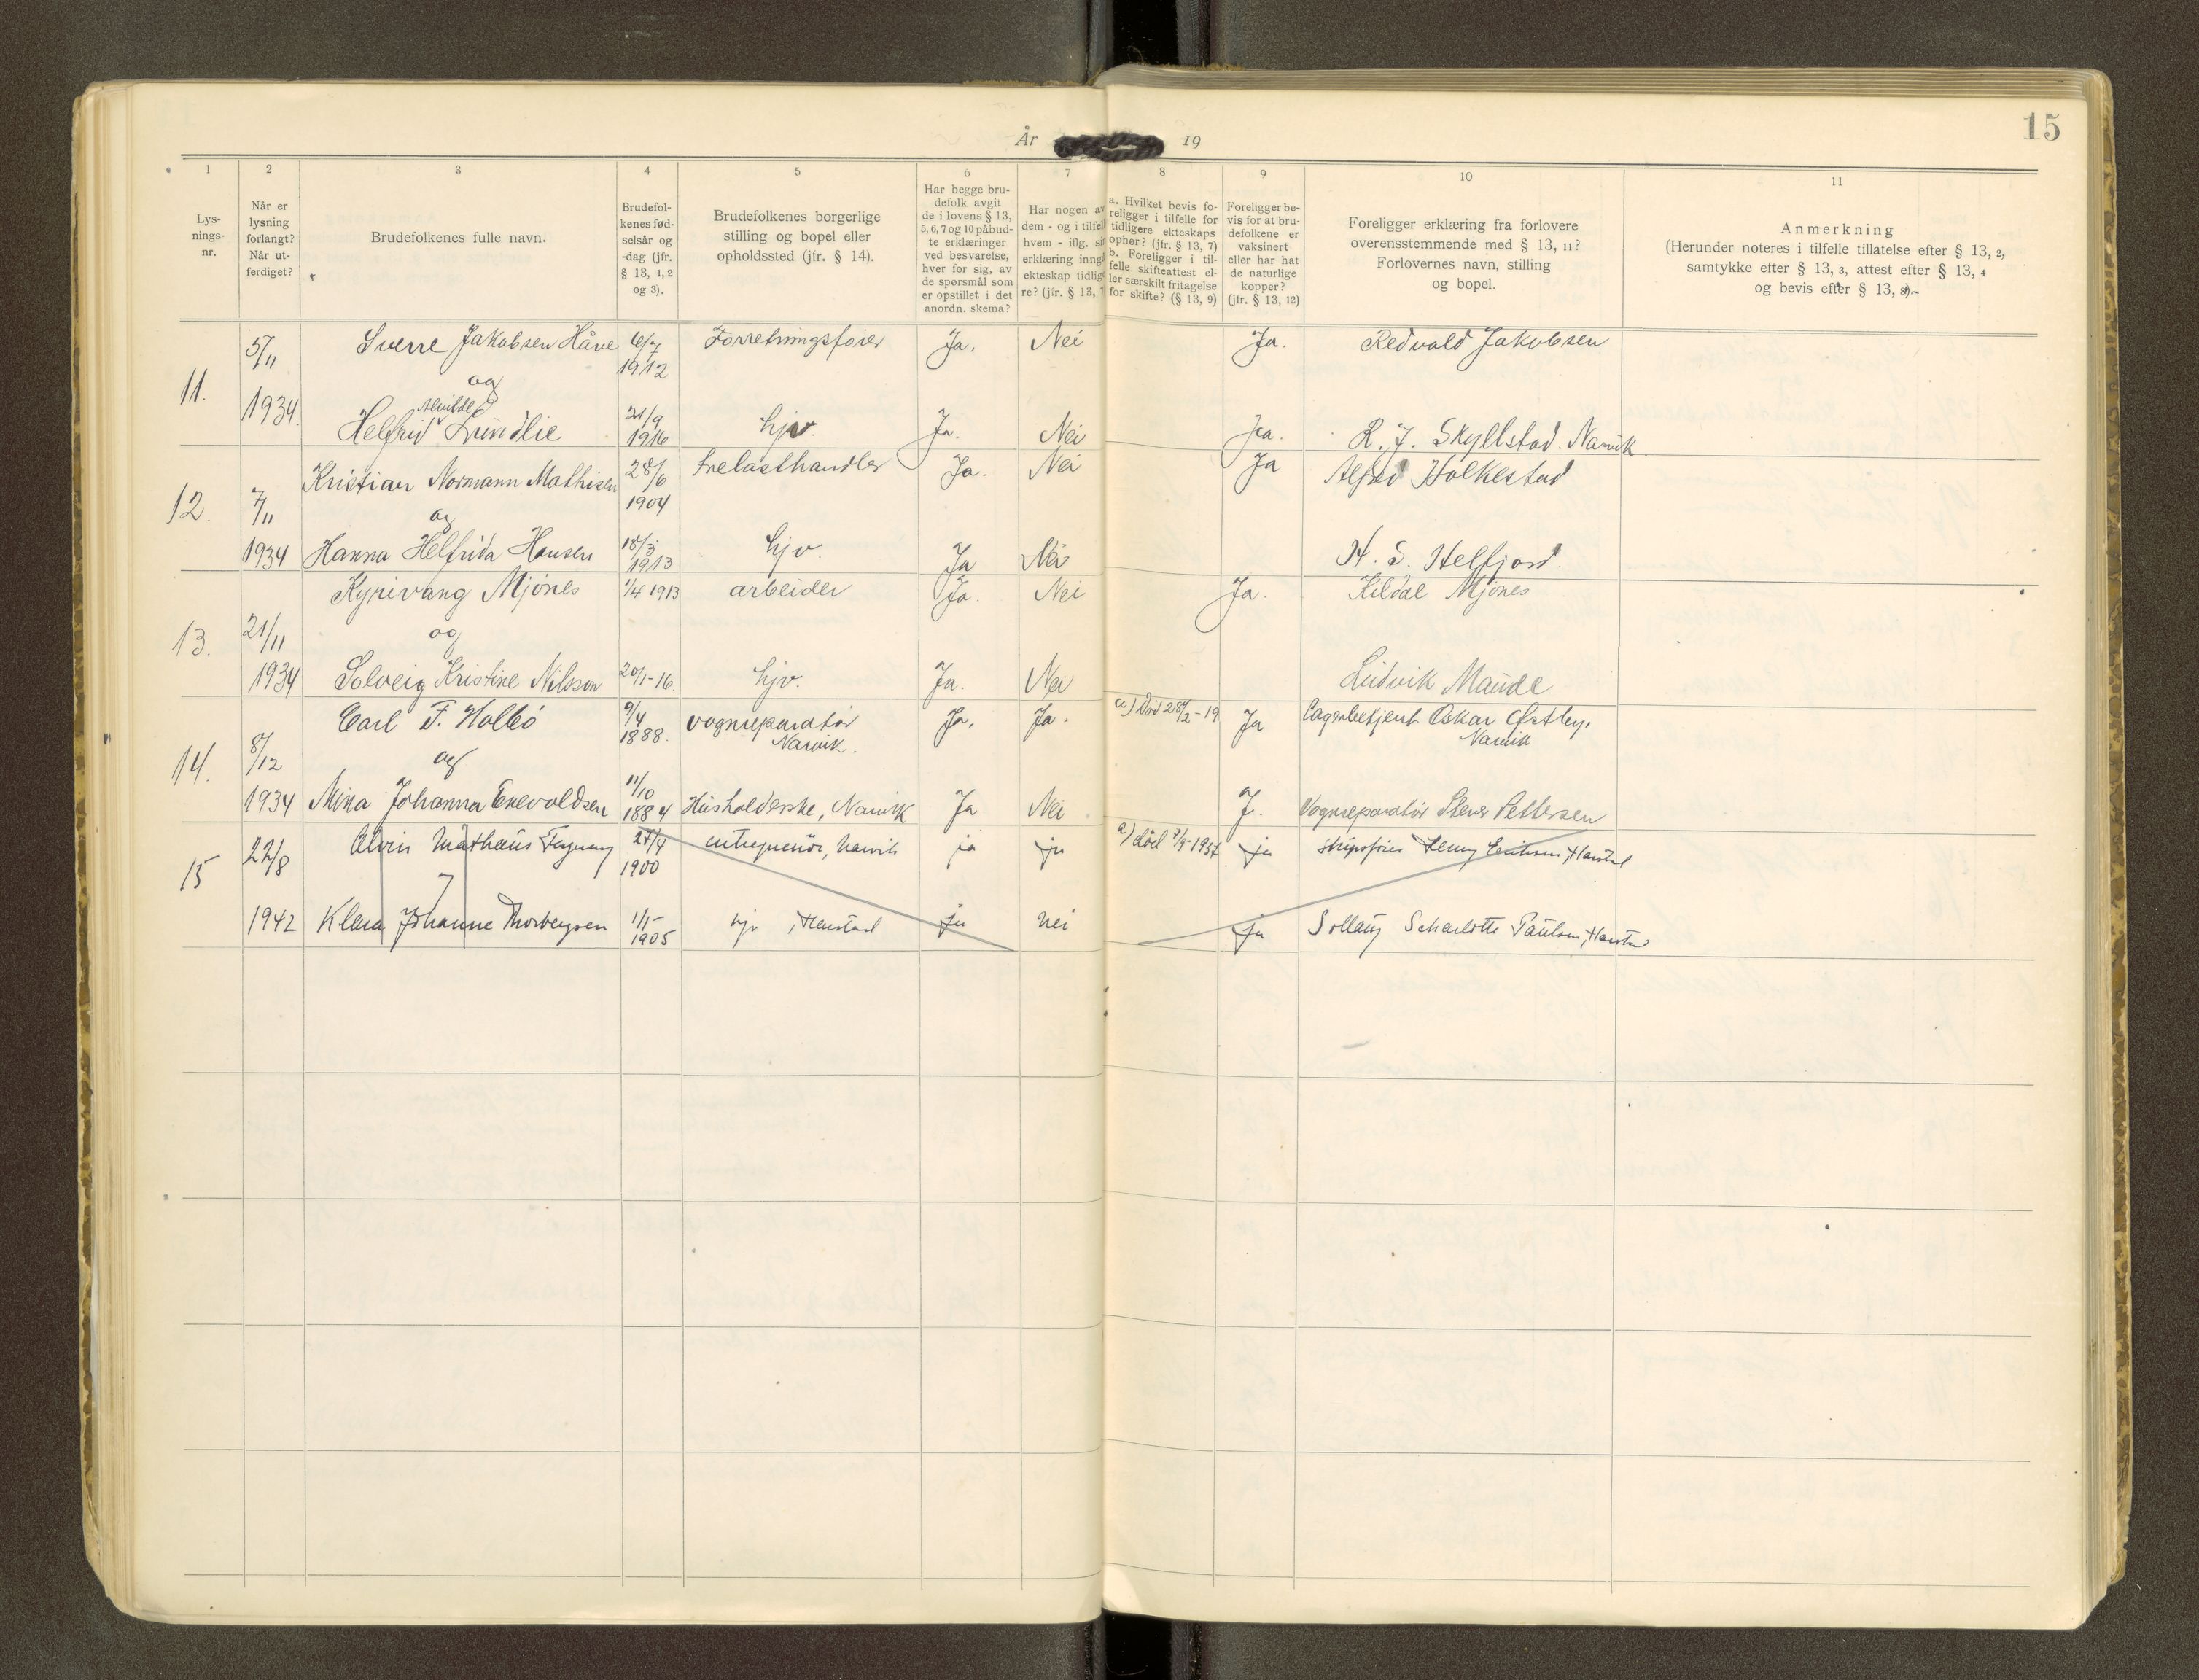 År 19
15
1
Lys-
nings-
nr.
2
Når er
lysning
forlangt?
Når ut-
ferdiget?
3
Brudefolkenes fulle navn.
4
Brudefol-
kenes fød-
selsår og
-dag (jfr.
§ 13, 1, 2
og 3).
5
Brudefolkenes borgerlige
stilling og bopel eller
opholdssted (jfr. § 14).
6
Har begge bru-
defolk avgit
de i lovens § 13,
5, 6, 7 og 10 påbud-
te erklæringer
ved besvarelse,
hver for sig, av
de spørsmål som
er opstillet i det
anordn. skema?
7
Har nogen av
dem - og i tilfell
hvem - iflg. sin
erklæring inngå
ekteskap tidlige
re? (jfr. § 13, 7
8
a. Hvilket bevis fo-
religger i tilfelle for
tidligere ekteskaps
ophør? (jfr. § 13, 7)
b. Foreligger i til-
felle skifteattest el-
ler særskilt fritagelse
for skifte? (§ 13, 9)
9
Foreligger be-
vis for at bru-
defolkene er
vaksinert
eller har hat
de naturlige
kopper?
(jfr. § 13, 12)
10
Foreligger erklæring fra forlovere
overensstemmende med § 13, 11?
Forlovernes navn, stilling
og bopel.
11
Anmerkning
(Herunder noteres i tilfelle tillatelse efter § 13, 2,
samtykke efter § 13, 3, attest efter § 13, 4
og bevis efter § 13, 8).
11.
5/11 Sverre Jakobsen Håve 6/7 1912 Forretningsfører Ja. Nei Ja. Redvald Jakobsen
og
Alvilde
1934. Helfrid Lundlie 21/9 1916 hjv. Ja. Nei Ja. R. J. Skyllstad. Narvik
12.
7/11 Kristian Normann Mathisen 28/6 1904 trelasthandler Ja. Nei Ja Alfred Holkestad
og
1934 Hanna Helfrida Hansen 18/3 1913 hjv. Ja Nei H. S. Helfjord.
13.
21/11 Mjønes 1/4 1913 arbeider Ja. Nei Ja. Kildal Mjønes
og
1934 Solveig Kristine Nilsson 20/1-16. hjv. Ja. Nei Ludvik Maude
14.
8/12 Carl F. Holbö 9/4 1888. vognreparatør Narvik. Ja. Ja. a) Död 28/2-19 Ja Lagerbetjent Oskar Østby, Narvik
og
1934 Mina Johanna Enevoldsen 11/10 1884 Husholderske, Narvik Ja Nei J. Vognreparatör Pettersen
15
22/8 Alvin Mathäus 27/4 1900 entreprenör, Narvik ja ja a) död ja Harstad
1942 Klara Johanne Thorbergsen 1/5- 1905 hjv, Harstad ja nei ja Sollaug Scharlotte Paulsen, Harstad